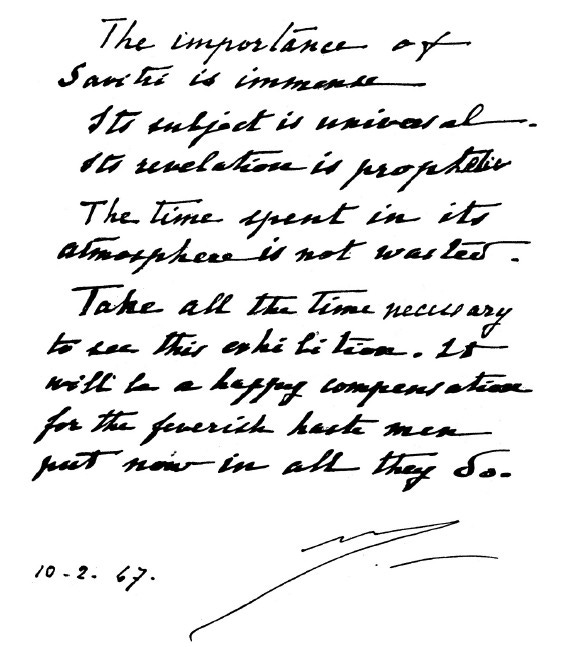 The importance of
Savitri is immense
Its subject is universal.
Its revelation is prophetic
The time spent in its
atmosphere is not wasted.
Take all the time necessary
to see this exhibition. It
will be a happy compensation
for the feverish haste men
put now in all they do.
10-2.67.